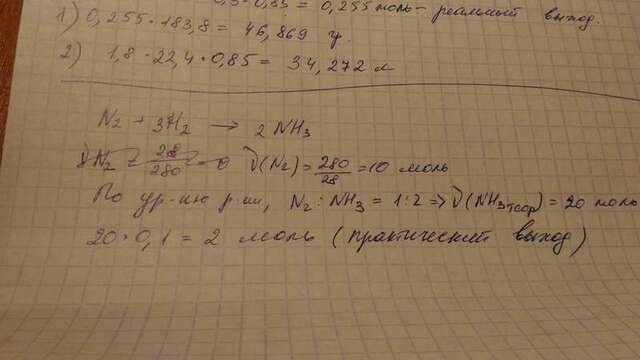 0,3 · 0,85 = 0,255 моль - реальный выход.
1) 0,255 · 183,8 = 46,869 гр.
2) 1,8 · 22,4 · 0,85 = 34,272 л
N2 + 3H2 → 2 NH3
ν(N2) = 280/28 = 10 моль
По ур-ию р-ии, N2 : NH3 = 1:2 => ν(NH3теор) = 20 моль
20 · 0,1 = 2 моль (практический выход)